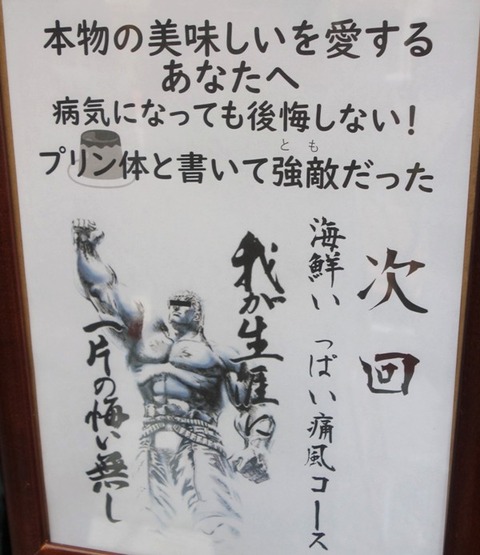 本物の美味しいを愛する
あなたへ
病気になっても後悔しない！
プリン体と書いて強敵だった
とも
次回
海鮮いっぱい痛風コース
我が生涯に
一片の悔い無し